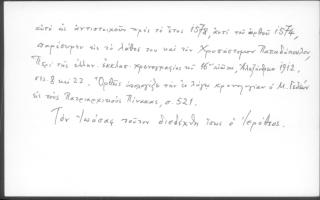 αὐτὸ ὡς ἀντιστοιχοῦν πρὸς τὸ ἔτος 1578, ἀντὶ τοῦ ὀρθοῦ 1574,
παρέσυρεν εἰς τὸ λάθος του καὶ τὸν Χρυσόστομον Παπαδόπουλον,
Περὶ τῆς ἑλλην. ἐκκλησ. χρονογραφίας τοῦ 16ου αἰῶνος, Ἀλεξάνδρεια 1912,
σελ. 8 καὶ 22. Ὀρθῶς ὑπολογίζει τὴν ἐν λόγῳ χρονολογίαν ὁ Μ. Γεδεὼν
εἰς τοὺς Πατριαρχικοὺς Πίνακας, σ. 521.
Τὸν Ἰωάσαφ τοῦτον διεδέχθη ἴσως ὁ Ἱερόθεος.